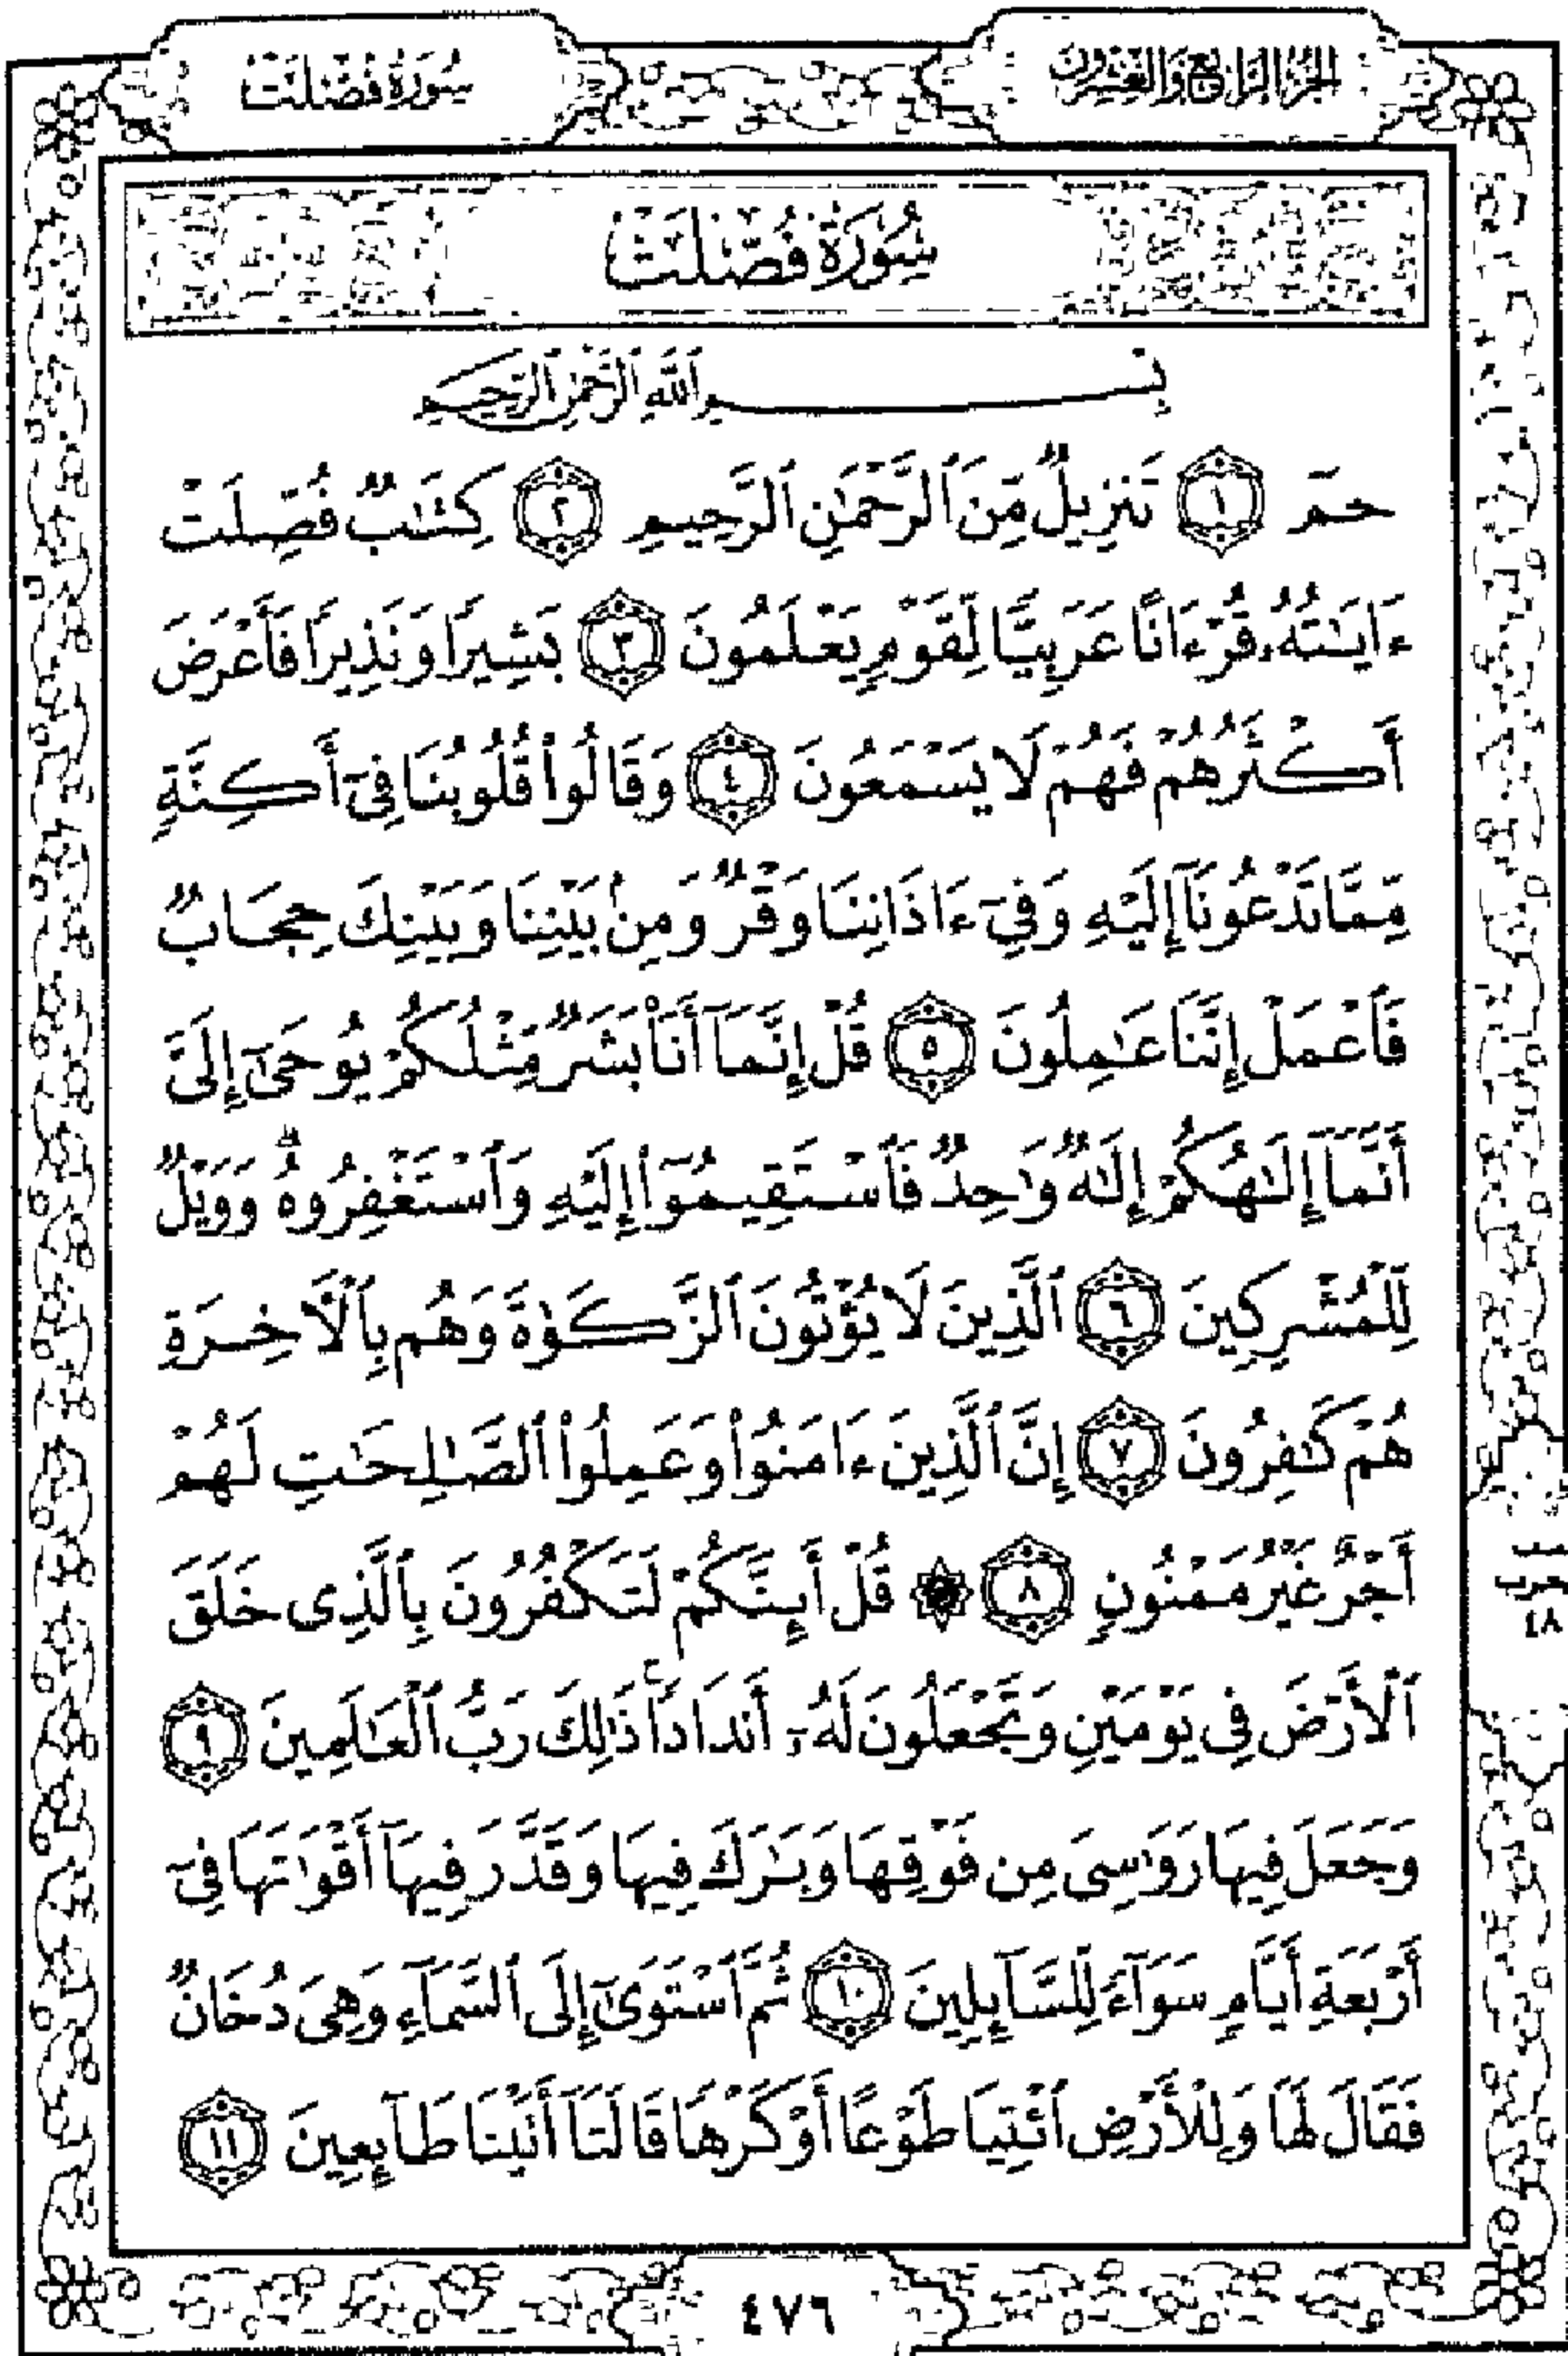 الجزء الرابع والعشرون
سُورَةُ فُصِّلَتْ
سُورَةُ فُصِّلَتْ
بِسْمِ ٱللَّهِ ٱلرَّحْمَٰنِ ٱلرَّحِيمِ
حمٓ ١ تَنزِيلٌ مِّنَ ٱلرَّحْمَٰنِ ٱلرَّحِيمِ ٢ كِتَٰبٌ فُصِّلَتْ
ءَايَٰتُهُۥ قُرْءَانًا عَرَبِيًّا لِّقَوْمٍ يَعْلَمُونَ ٣ بَشِيرًا وَنَذِيرًا فَأَعْرَضَ
أَكْثَرُهُمْ فَهُمْ لَا يَسْمَعُونَ ٤ وَقَالُوا۟ قُلُوبُنَا فِىٓ أَكِنَّةٍ
مِّمَّا تَدْعُونَآ إِلَيْهِ وَفِىٓ ءَاذَانِنَا وَقْرٌ وَمِنۢ بَيْنِنَا وَبَيْنِكَ حِجَابٌ
فَٱعْمَلْ إِنَّنَا عَٰمِلُونَ ٥ قُلْ إِنَّمَآ أَنَا۠ بَشَرٌ مِّثْلُكُمْ يُوحَىٰٓ إِلَىَّ
أَنَّمَآ إِلَٰهُكُمْ إِلَٰهٌ وَٰحِدٌ فَٱسْتَقِيمُوٓا۟ إِلَيْهِ وَٱسْتَغْفِرُوهُ ۗ وَوَيْلٌ
لِّلْمُشْرِكِينَ ٦ ٱلَّذِينَ لَا يُؤْتُونَ ٱلزَّكَوٰةَ وَهُم بِٱلْـَٔاخِرَةِ
هُمْ كَٰفِرُونَ ٧ إِنَّ ٱلَّذِينَ ءَامَنُوا۟ وَعَمِلُوا۟ ٱلصَّٰلِحَٰتِ لَهُمْ
أَجْرٌ غَيْرُ مَمْنُونٍ ٨ ۞ قُلْ أَئِنَّكُمْ لَتَكْفُرُونَ بِٱلَّذِى خَلَقَ
ٱلْأَرْضَ فِى يَوْمَيْنِ وَتَجْعَلُونَ لَهُۥٓ أَندَادًا ۚ ذَٰلِكَ رَبُّ ٱلْعَٰلَمِينَ ٩
وَجَعَلَ فِيهَا رَوَٰسِىَ مِن فَوْقِهَا وَبَٰرَكَ فِيهَا وَقَدَّرَ فِيهَآ أَقْوَٰتَهَا فِىٓ
أَرْبَعَةِ أَيَّامٍ سَوَآءً لِّلسَّآئِلِينَ ١٠ ثُمَّ ٱسْتَوَىٰٓ إِلَى ٱلسَّمَآءِ وَهِىَ دُخَانٌ
فَقَالَ لَهَا وَلِلْأَرْضِ ٱئْتِيَا طَوْعًا أَوْ كَرْهًا قَالَتَآ أَتَيْنَا طَآئِعِينَ ١١
٤٨
٤٧٦